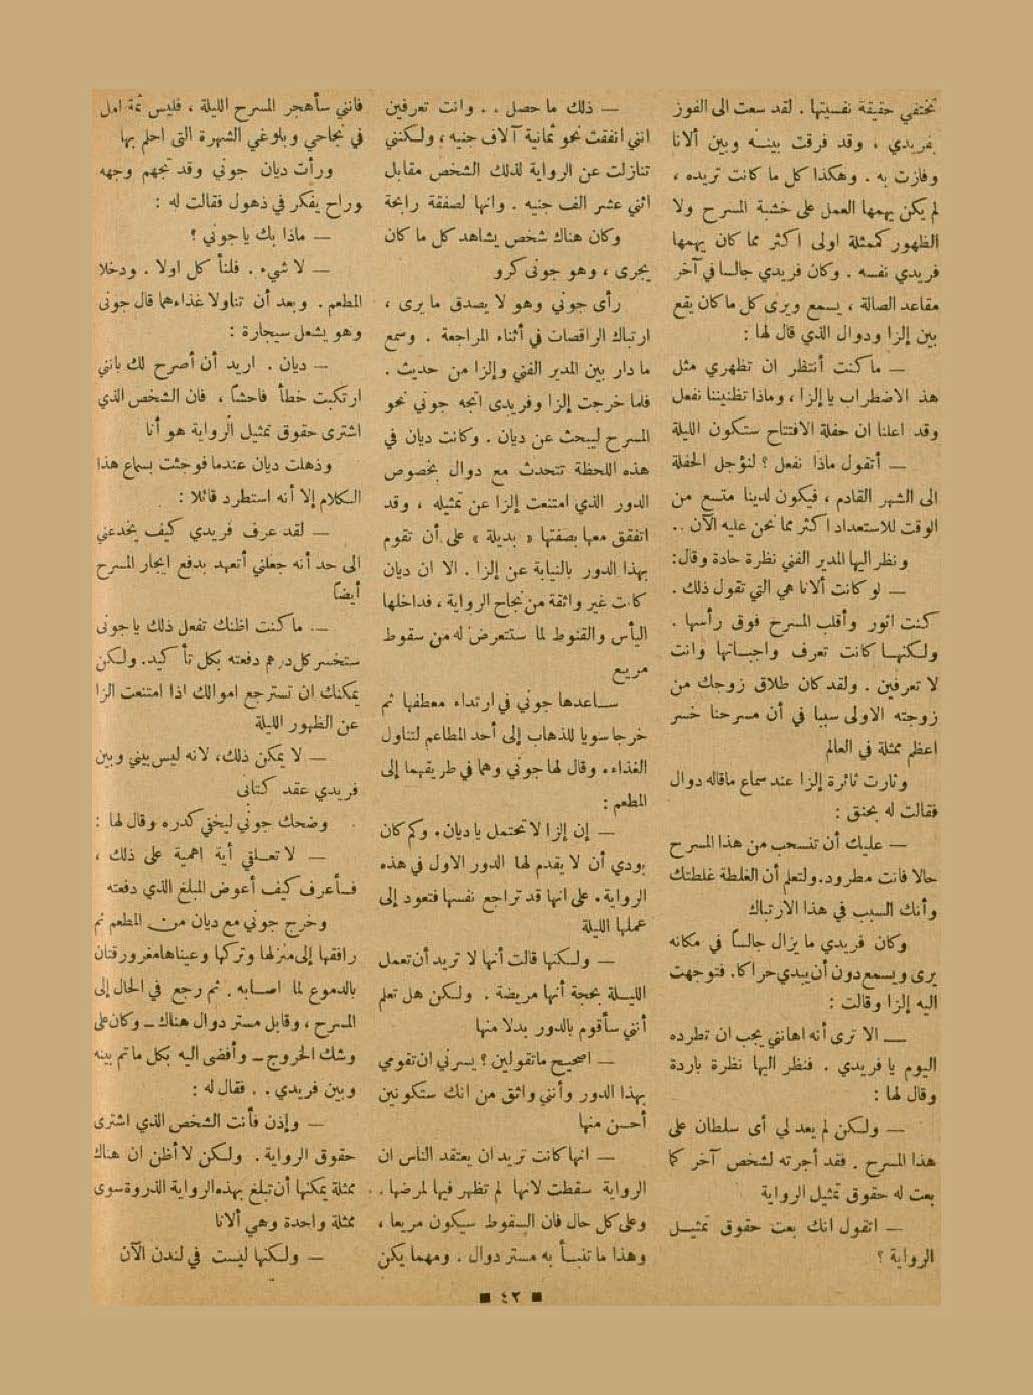 تختفي حقيقة نفسيتها . لقد سعت الى الفوز
بفريدي ، وقد فرقت بينه وبين ألانا
وفازت به . وهكذا كل ما كانت تريده ،
لم يكن يهمها العمل على خشبة المسرح ولا
الظهور كممثلة اولى اكثر مما كان يهمها
فريدي نفسه . وكان فريدي جالسا في آخر
مقاعد الصالة ، يسمع ويرى كل ما كان يقع
بين إلزا ودوال الذي قال لها :
— ما كنت أنتظر ان تظهري مثل
هذ الاضطراب يا إلزا ، وماذا تظنيننا نفعل
وقد اعلنا ان حفلة الافتتاح ستكون الليلة
— أتقول ماذا نفعل ؟ لنؤجل الحفلة
الى الشهر القادم ، فيكون لدينا متسع من
الوقت للاستعداد اكثر مما نحن عليه الآن ..
ونظر اليها المدير الفني نظرة حادة وقال:
— لو كانت ألانا هي التي تقول ذلك .
كنت اثور وأقلب المسرح فوق رأسها .
ولكنها كانت تعرف واجباتها وانت
لا تعرفين . ولقد كان طلاق زوجك من
زوجته الاولى سببا في أن مسرحنا خسر
اعظم ممثلة في العالم
وثارت ثائرة إلزا عند سماع ماقاله دوال
فقالت له بحنق :
— عليك أن تنسحب من هذا المسرح
حالا فانت مطرود. ولتعلم أن الغلطة غلطتك
وأنك السبب في هذا الارتباك
وكان فريدي ما يزال جالساً في مكانه
يرى ويسمع دون أن يبدي حراكا. فتوجهت
اليه إلزا وقالت :
— الا ترى أنه اهانني يجب ان تطرده
اليوم يا فريدي . فنظر اليها نظرة باردة
وقال لها :
— ولكن لم يعد لي أى سلطان على
هذا المسرح . فقد أجرته لشخص آخر كما
بعت له حقوق تمثيل الرواية
— اتقول انك بعت حقوق تمثيل
الرواية ؟
— ذلك ما حصل . . وانت تعرفين
انني انفقت نحو ثمانية آلاف جنيه ، ولكنني
تنازلت عن الرواية لذلك الشخص مقابل
اثني عشر الف جنيه . وانها لصفقة رابحة
وكان هناك شخص يشاهد كل ما كان
يجرى ، وهو جونى كرو
رأى جوني وهو لا يصدق ما يرى ،
ارتباك الراقصات في أثناء المراجعة . وسمع
ما دار بين المدير الفني وإلزا من حديث .
فلما خرجت إلزا وفريدى اتجه جوني نحو
المسرح ليبحث عن ديان . وكانت ديان في
هذه اللحظة تتحدث مع دوال بخصوص
الدور الذي امتنعت إلزا عن تمثيله ، وقد
اتفقق معها بصفتها « بديلة » على أن تقوم
بهذا الدور بالنيابة عن إلزا . الا ان ديان
كانت غير واثقة من نجاح الرواية ، فداخلها
اليأس والقنوط لما ستتعرض له من سقوط
مريع
ساعدها جوني في ارتداء معطفها ثم
خرجا سويا للذهاب إلى أحد المطاعم لتناول
الغذاء. وقال لها جوني وهما في طريقهما إلى
المطعم :
— إن إلزا لا تحتمل يا ديان. وكم كان
بودي أن لا يقدم لها الدور الاول في هذه
الرواية. على انها قد تراجع نفسها فتعود إلى
عملها الليلة
— ولكنها قالت أنها لا تريد أن تعمل
الليلة بحجة أنها مريضة . ولكن هل تعلم
أنني سأقوم بالدور بدلا منها
— اصحيح ماتقولين ؟ يسرني ان تقومي
بهذا الدور وأنني واثق من انك ستكونين
أحسن منها
— انها كانت تريد ان يعتقد الناس ان
الرواية سقطت لانها لم تظهر فيها لمرضها .
وعلى كل حال فان السقوط سيكون مريعا ،
وهذا ما تنبأ به مستر دوال . ومهما يكن
فانني سأهجر المسرح الليلة ، فليس ثمة امل
في نجاحي وبلوغي الشهرة التي احلم بها
ورأت ديان جوني وقد تجهم وجهه
وراح يفكر في ذهول فقالت له :
— ماذا بك يا جوني ؟
— لا شيء . فلنأكل اولا . ودخلا
المطعم . وبعد أن تناولا غذاءهما قال جونى
وهو يشعل سيجارة :
— ديان . اريد أن أصرح لك بانني
ارتكبت خطأ فاحشاً ، فان الشخص الذي
اشترى حقوق تمثيل الرواية هو أنا
وذهلت ديان عندما فوجئت بسماع هذا
الكلام إلا أنه استطرد قائلا :
— لقد عرف فريدي كيف يخدعني
الى حد أنه جعلني أتعهد بدفع ايجار المسرح
أيضاً
— ما كنت اظنك تفعل ذلك يا جونى
ستخسر كل درهم دفعته بكل تأكيد. ولكن
يمكنك ان تسترجع اموالك اذا امتنعت الزا
عن الظهور الليلة
— لا يمكن ذلك، لانه ليس بيني وبين
فريدي عقد كتابى
وضحك جوني ليخفي كدره وقال لها :
— لا تعلقي أية اهمية على ذلك ،
فسأعرف كيف أعوض المبلغ الذي دفعته
وخرج جوني مع ديان من المطعم ثم
رافقها إلى منزلها وتركها وعيناها مغرورقتان
بالدموع لما اصابه . ثم رجع في الحال إلى
المسرح ، وقابل مستر دوال هناك — وكان على
وشك الخروج — وأفضى اليه بكل ما تم بينه
وبين فريدي . . فقال له :
— وإذن فأنت الشخص الذي اشترى
حقوق الرواية . ولكن لا أظن ان هناك
ممثلة يمكنها أن تبلغ بهذه الرواية الذروة سوى
ممثلة واحدة وهي ألانا
— ولكنها ليست في لندن الآن
■ ٤٢ ■